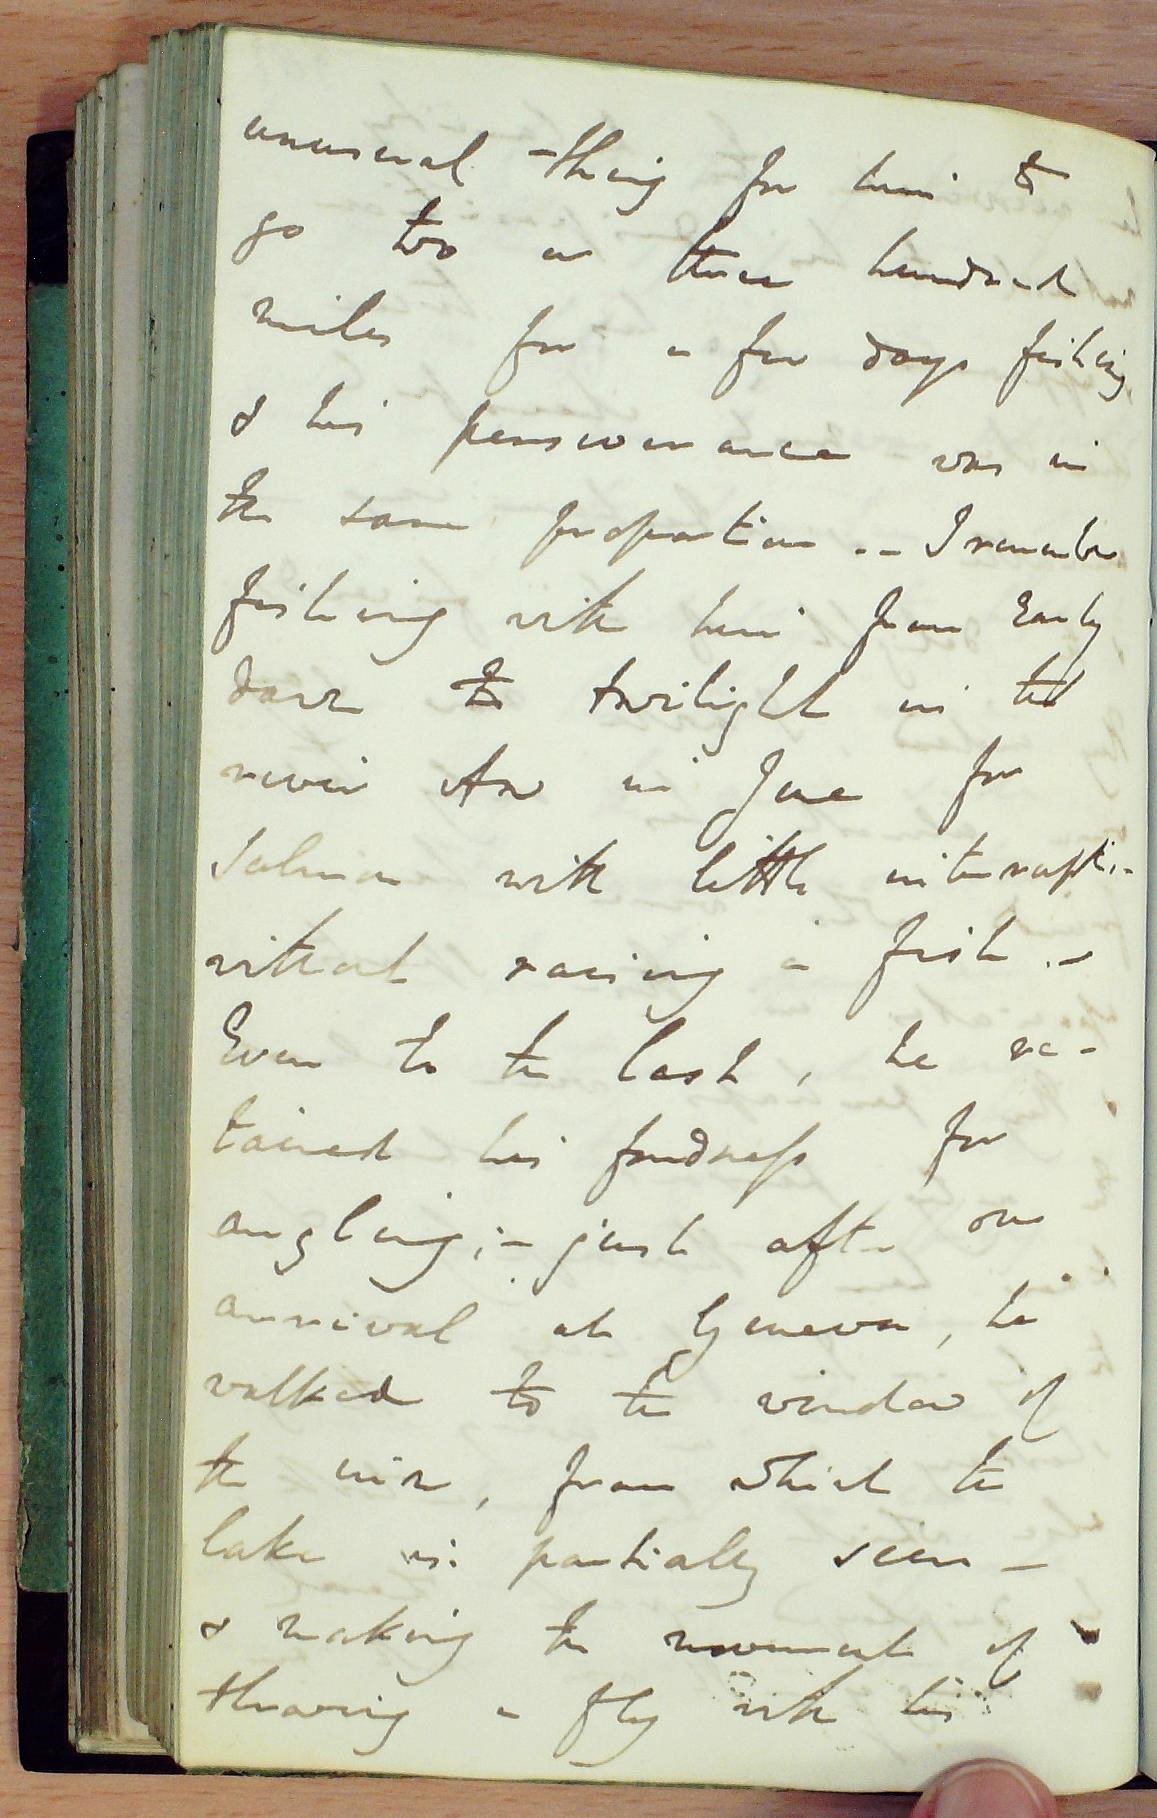 unusual thing for him to
go two or three hundred
miles for a few days fishing
& his perseverance was in
the same proportion -- I remember
fishing with him from early
dawn to twilight in the
river Aw in June for
Salmon with little interrupti-
without raising a fish. -
Even to the last, he re-
tained his fondness for
angling; - just after our
arrival at Geneva, he
walked to the window of
the inn, from which the
lake is partially seen -
& making the movement of
throwing a fly with his